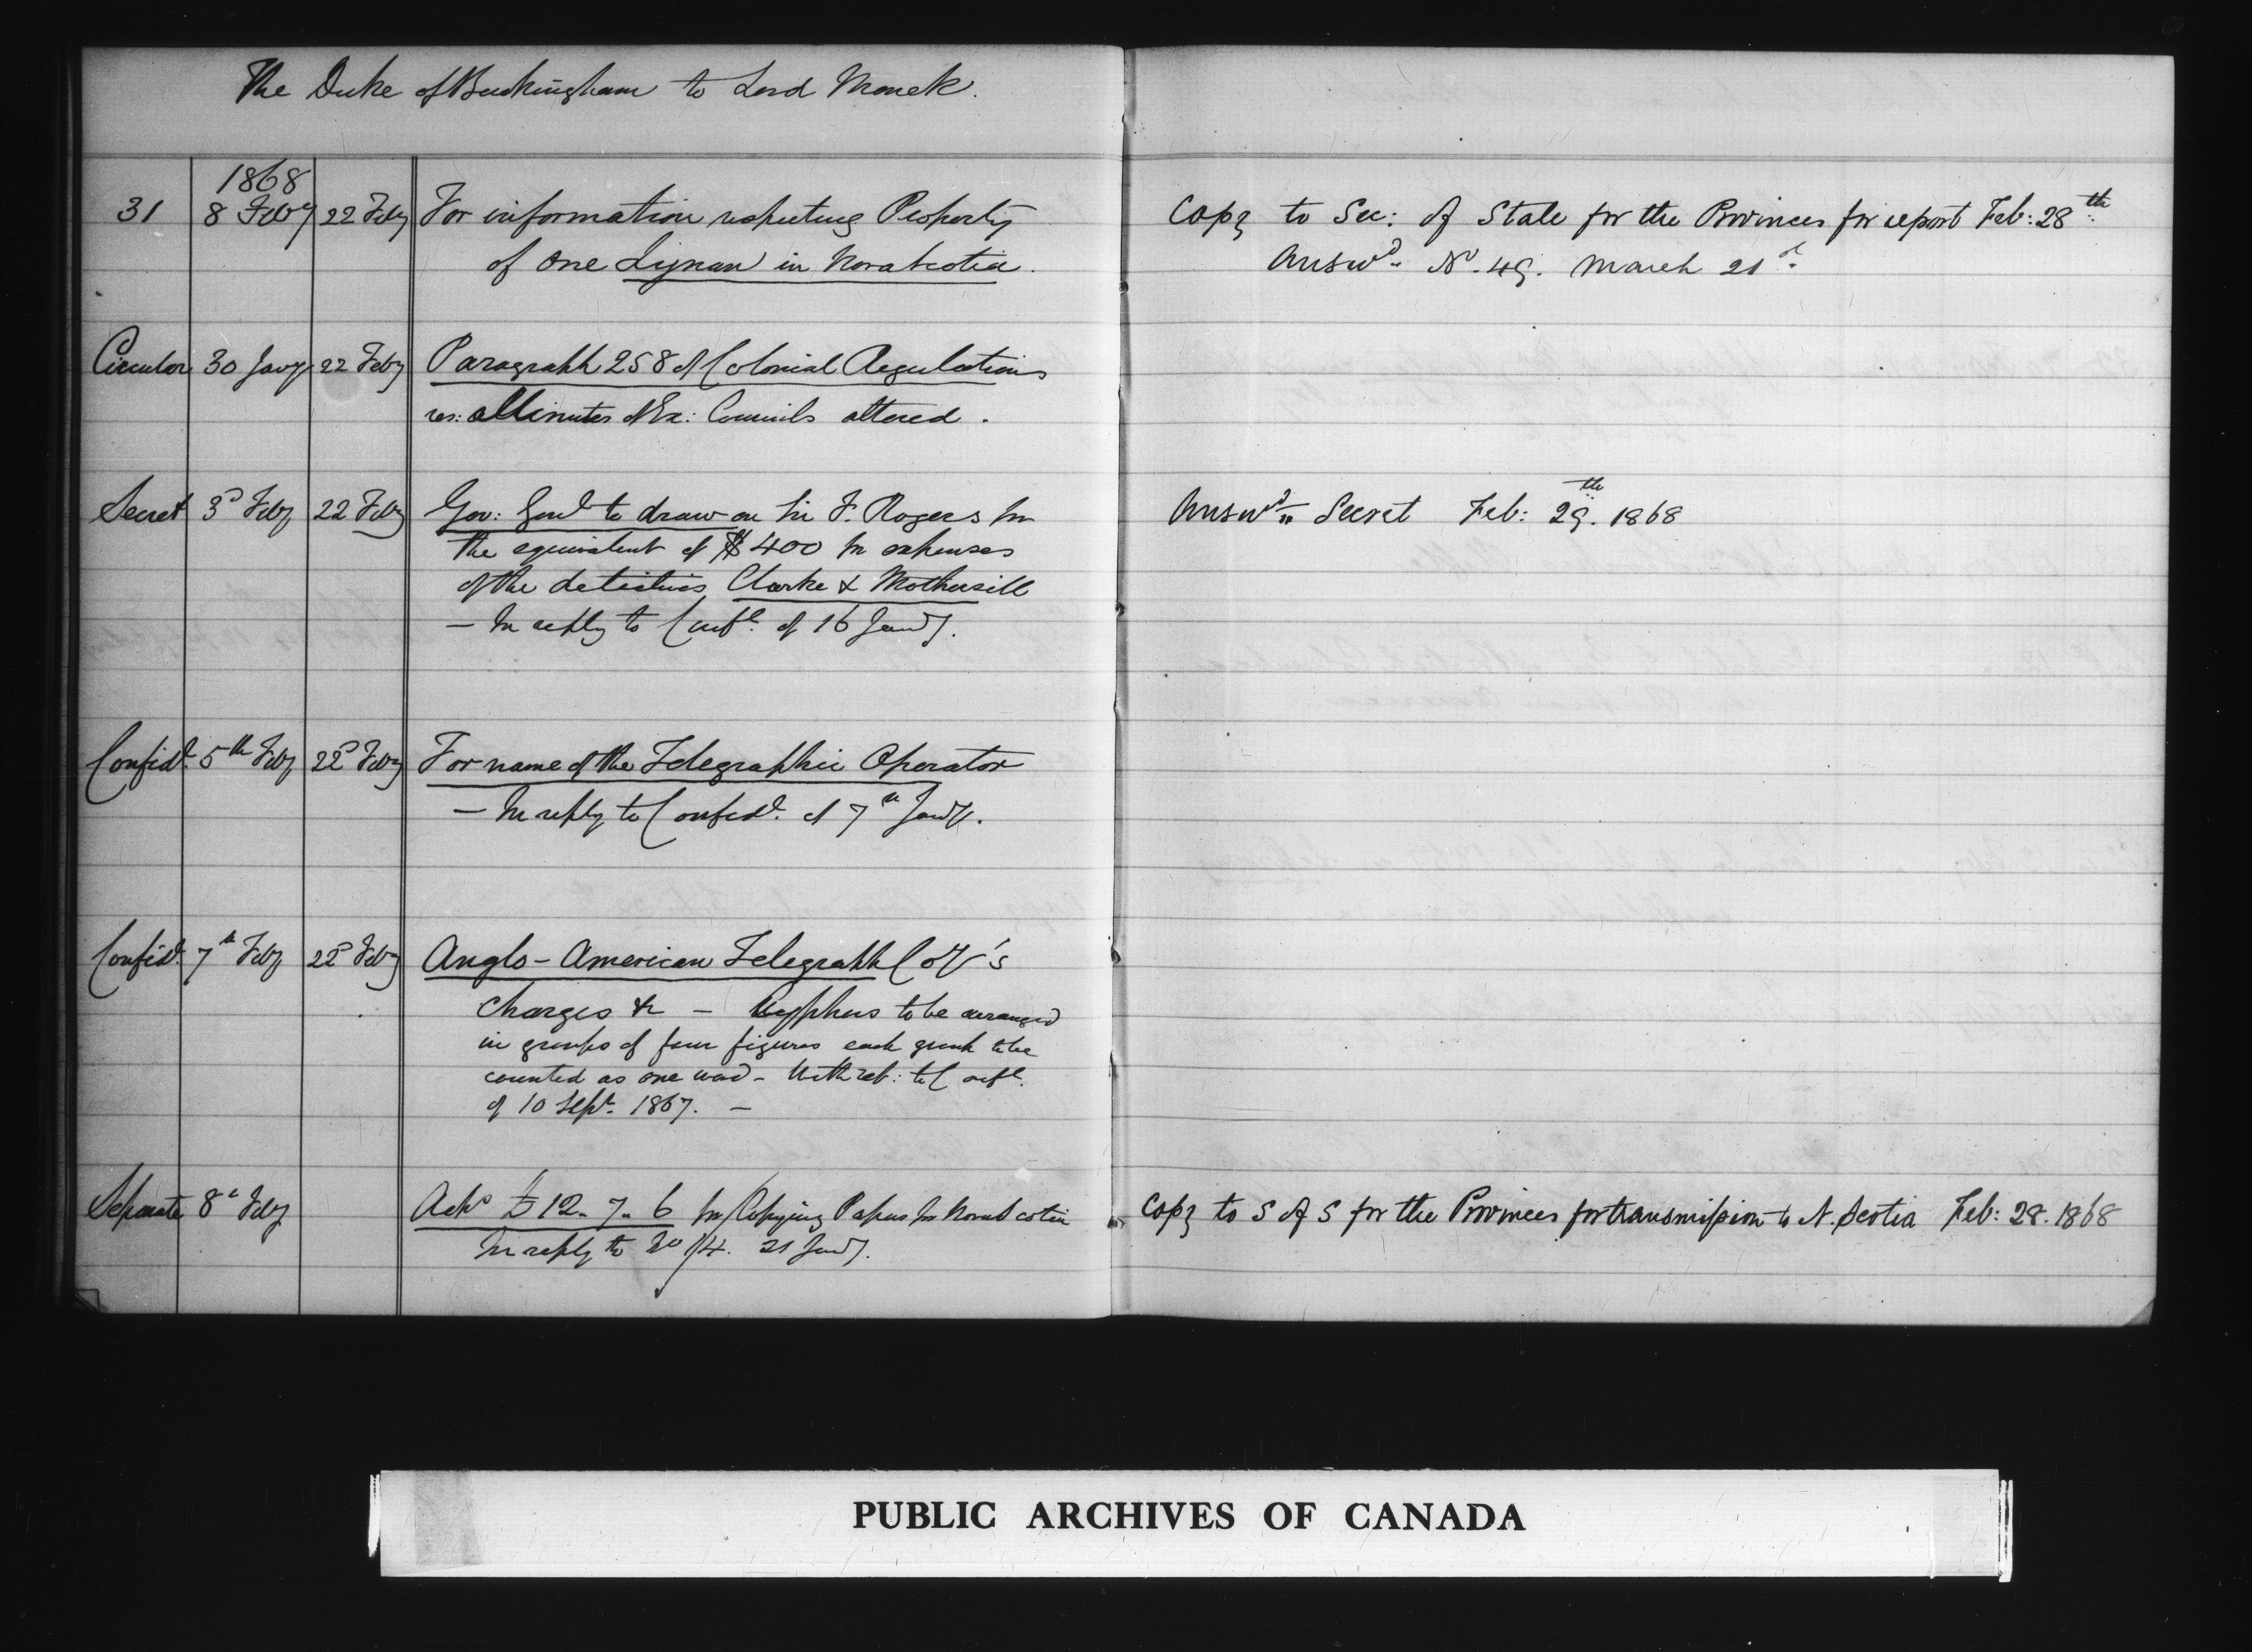 The Duke of Buckingham to Lord Monck.
1868
31 8 Feby 22 Feby For information respecting Property
of one Lynan in Nova Scotia.
Copy to Sec: of State for the Provinces for report Feb: 28th
Answd. No. 49. March 21st
Circular 30 Jany 22 Feby Paragraph 258 of Colonial Regulations
res: Minutes of Ex: Councils altered.
Secret 3d Feby 22 Feby Gov: Genl to draw on Sir F. Rogers for
the equivalent of $400 for expenses
of the detectives Clarke & Mothersill
— In reply to Confl. of 16 Jany.
Answd. Secret Feb: 29th. 1868
Confidl. 5th Feby 22d Feby For name of the Telegraphic Operator
— In reply to Confidl. of 7th Jany.
Confidl. 7th Feby 22d Feby Anglo-American Telegraph Coy's
Charges &c — Cyphers to be arranged
in groups of four figures each group to be
counted as one word - With ref: to Confl.
of 10 Sept. 1867. —
Separate 8th Feby Ackd £12-7-6 for Copying Papers for Nova Scotia
In reply to No 14. 21 Jany.
Copy to S of S for the Provinces for transmission to N. Scotia Feb: 28. 1868
PUBLIC ARCHIVES OF CANADA